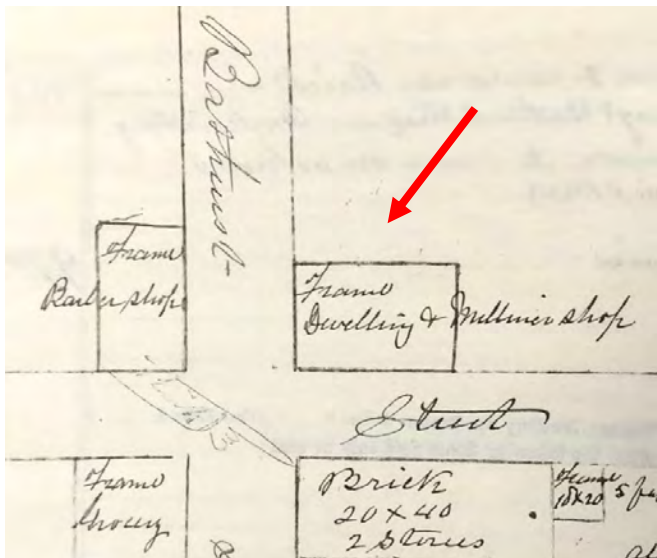 Bathurst
Frame
Barber shop
Frame
Dwelling & Milliner shop
Street
Frame
Grocery
Brick
20 x 40
2 Stories
Frame
18x20
5